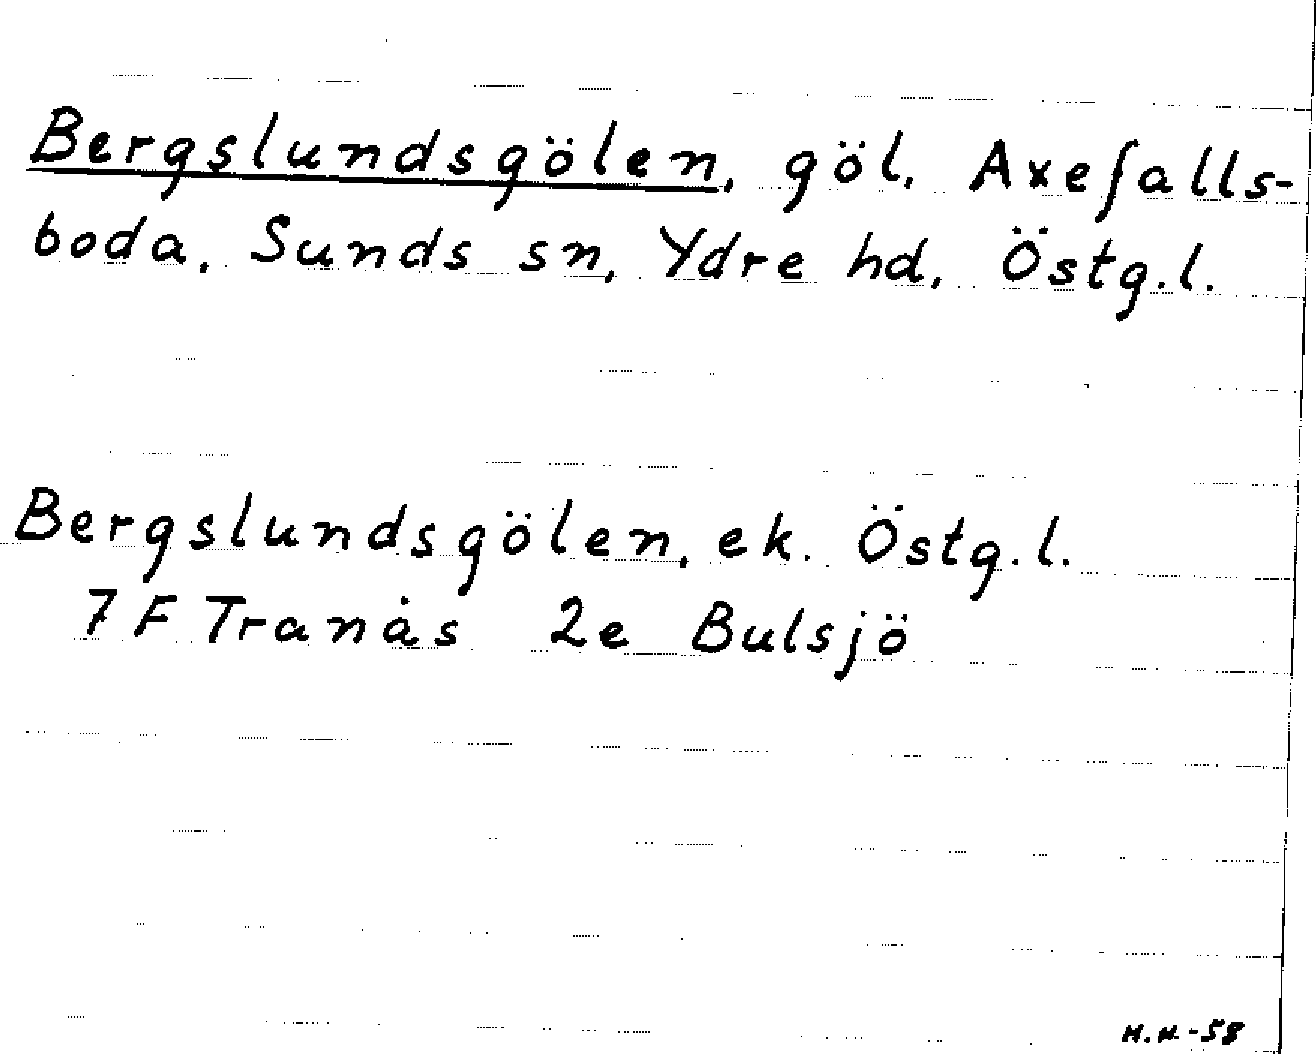 Bergslundsgölen, göl. Axefalls-
boda, Sunds sn, Ydre hd, Östg.l.
Bergslundsgölen, ek. Östg.l.
7 F Tranås 2e Bulsjö
H.H.-58